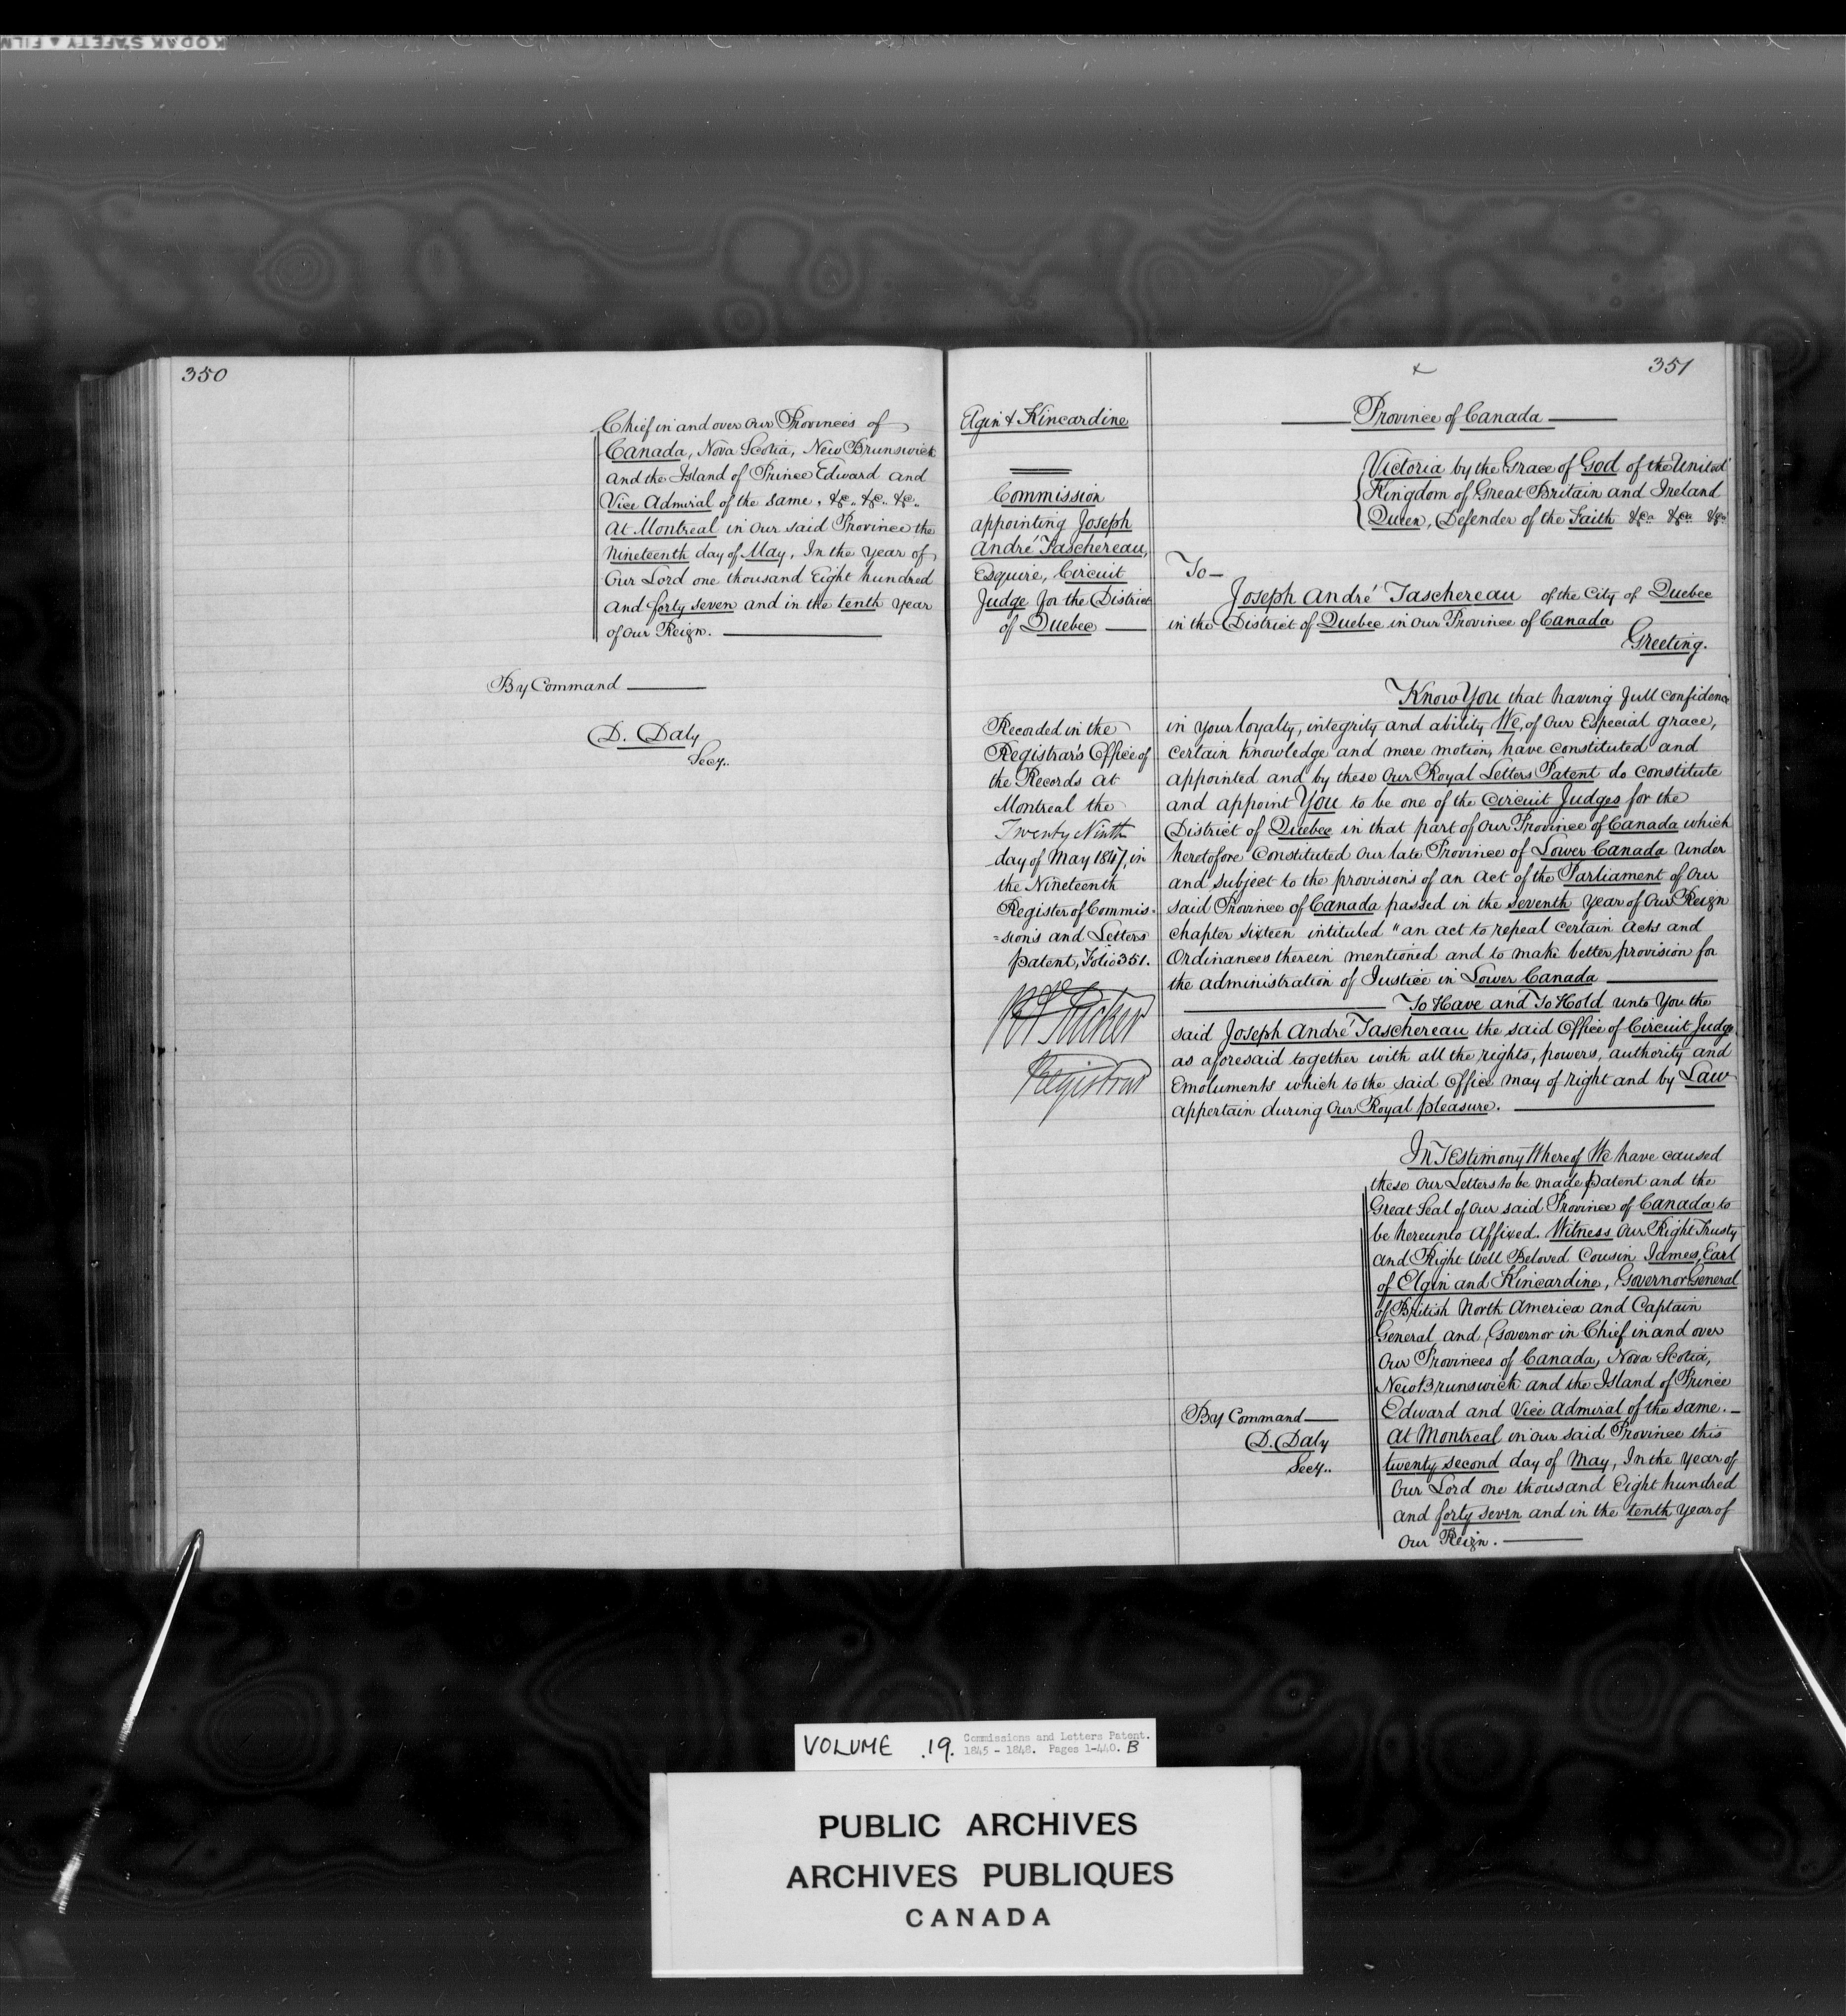 KODAK SAFETY ▲ FILM
350
Chief in and over Our Provinces of
Canada, Nova Scotia, New Brunswick
and the Island of Prince Edward and
Vice Admiral of the same, &c., &c., &c.,
At Montreal in our said Province the
Nineteenth day of May, In the Year of
Our Lord one thousand Eight hundred
and forty seven and in the tenth Year
of Our Reign.
By Command
D. Daly
Secy..
351
Elgin & Kincardine
Commission
appointing Joseph
André Taschereau,
Esquire, Circuit
Judge for the District
of Quebec
Recorded in the
Registrar's Office of
the Records at
Montreal the
Twenty Ninth
day of May 1847, in
the Nineteenth
Register of Commis-
=sions and Letters
patent, Folio 351.
Tucker
Registrar
Province of Canada
Victoria by the Grace of God of the United
Kingdom of Great Britain and Ireland
Queen, Defender of the Faith &ca &ca &ca
To
Joseph André Taschereau of the City of Quebec
in the District of Quebec in Our Province of Canada
Greeting.
Know You that having full confidence
in your loyalty, integrity and ability We, of Our Especial grace,
certain knowledge and mere motion, have constituted and
appointed and by these Our Royal Letters Patent do constitute
and appoint You to be one of the Circuit Judges for the
District of Quebec in that part of Our Province of Canada which
heretofore Constituted Our late Province of Lower Canada Under
and subject to the provisions of an Act of the Parliament of Our
said Province of Canada passed in the seventh Year of Our Reign
chapter sixteen intituled "an act to repeal certain Acts and
Ordinances therein mentioned and to make better provision for
the administration of Justice in Lower Canada
To Have and To Hold unto You the
said Joseph André Taschereau the said Office of Circuit Judge
as aforesaid together with all the rights, powers, authority and
Emoluments which to the said Office may of right and by Law
appertain during Our Royal pleasure.
In Testimony Whereof We have caused
these Our Letters to be made patent and the
Great Seal of Our said Province of Canada to
be hereunto Affixed. Witness Our Right Trusty
and Right Well Beloved Cousin James, Earl
of Elgin and Kincardine, Governor General
of British North America and Captain
General and Governor in Chief in and over
Our Provinces of Canada, Nova Scotia,
New Brunswick and the Island of Prince
Edward and Vice Admiral of the same.
At Montreal in our said Province this
twenty second day of May, In the Year of
Our Lord one thousand Eight hundred
and forty seven and in the tenth Year of
Our Reign.
By Command
D. Daly
Secy..
VOLUME .19. Commissions and Letters Patent.
1845 - 1848. Pages 1-440. B
PUBLIC ARCHIVES
ARCHIVES PUBLIQUES
CANADA